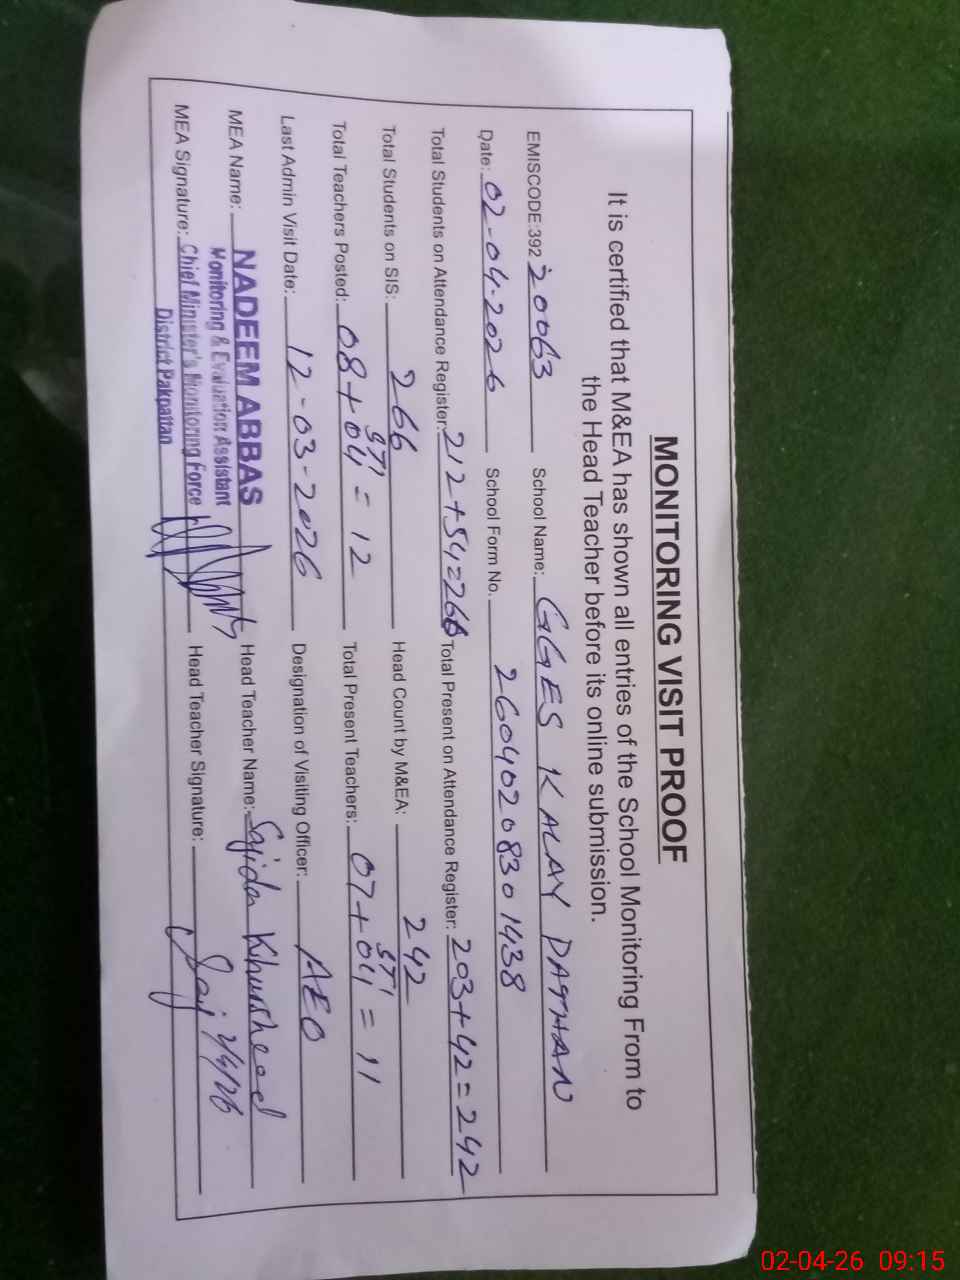 MONITORING VISIT PROOF
It is certified that M&EA has shown all entries of the School Monitoring From to
the Head Teacher before its online submission.
EMISCODE:392 20063 School Name: GGES KALAY PATHAN
Date: 02-04-2026 School Form No. 26040208301438
Total Students on Attendance Register: 212+54=266 Total Present on Attendance Register: 203+42=242
Total Students on SIS: 266 Head Count by M&EA: 242
Total Teachers Posted: 08+04 STI = 12 Total Present Teachers: 07+04 STI = 11
Last Admin Visit Date: 12-03-2026 Designation of Visiting Officer: AEO
MEA Name: NADEEM ABBAS Head Teacher Name: Sajida Khursheed
Monitoring & Evaluation Assistant
MEA Signature: Chief Minister's Monitoring Force Head Teacher Signature: Saj 2/4/26
District Pakpattan
02-04-26 09:15